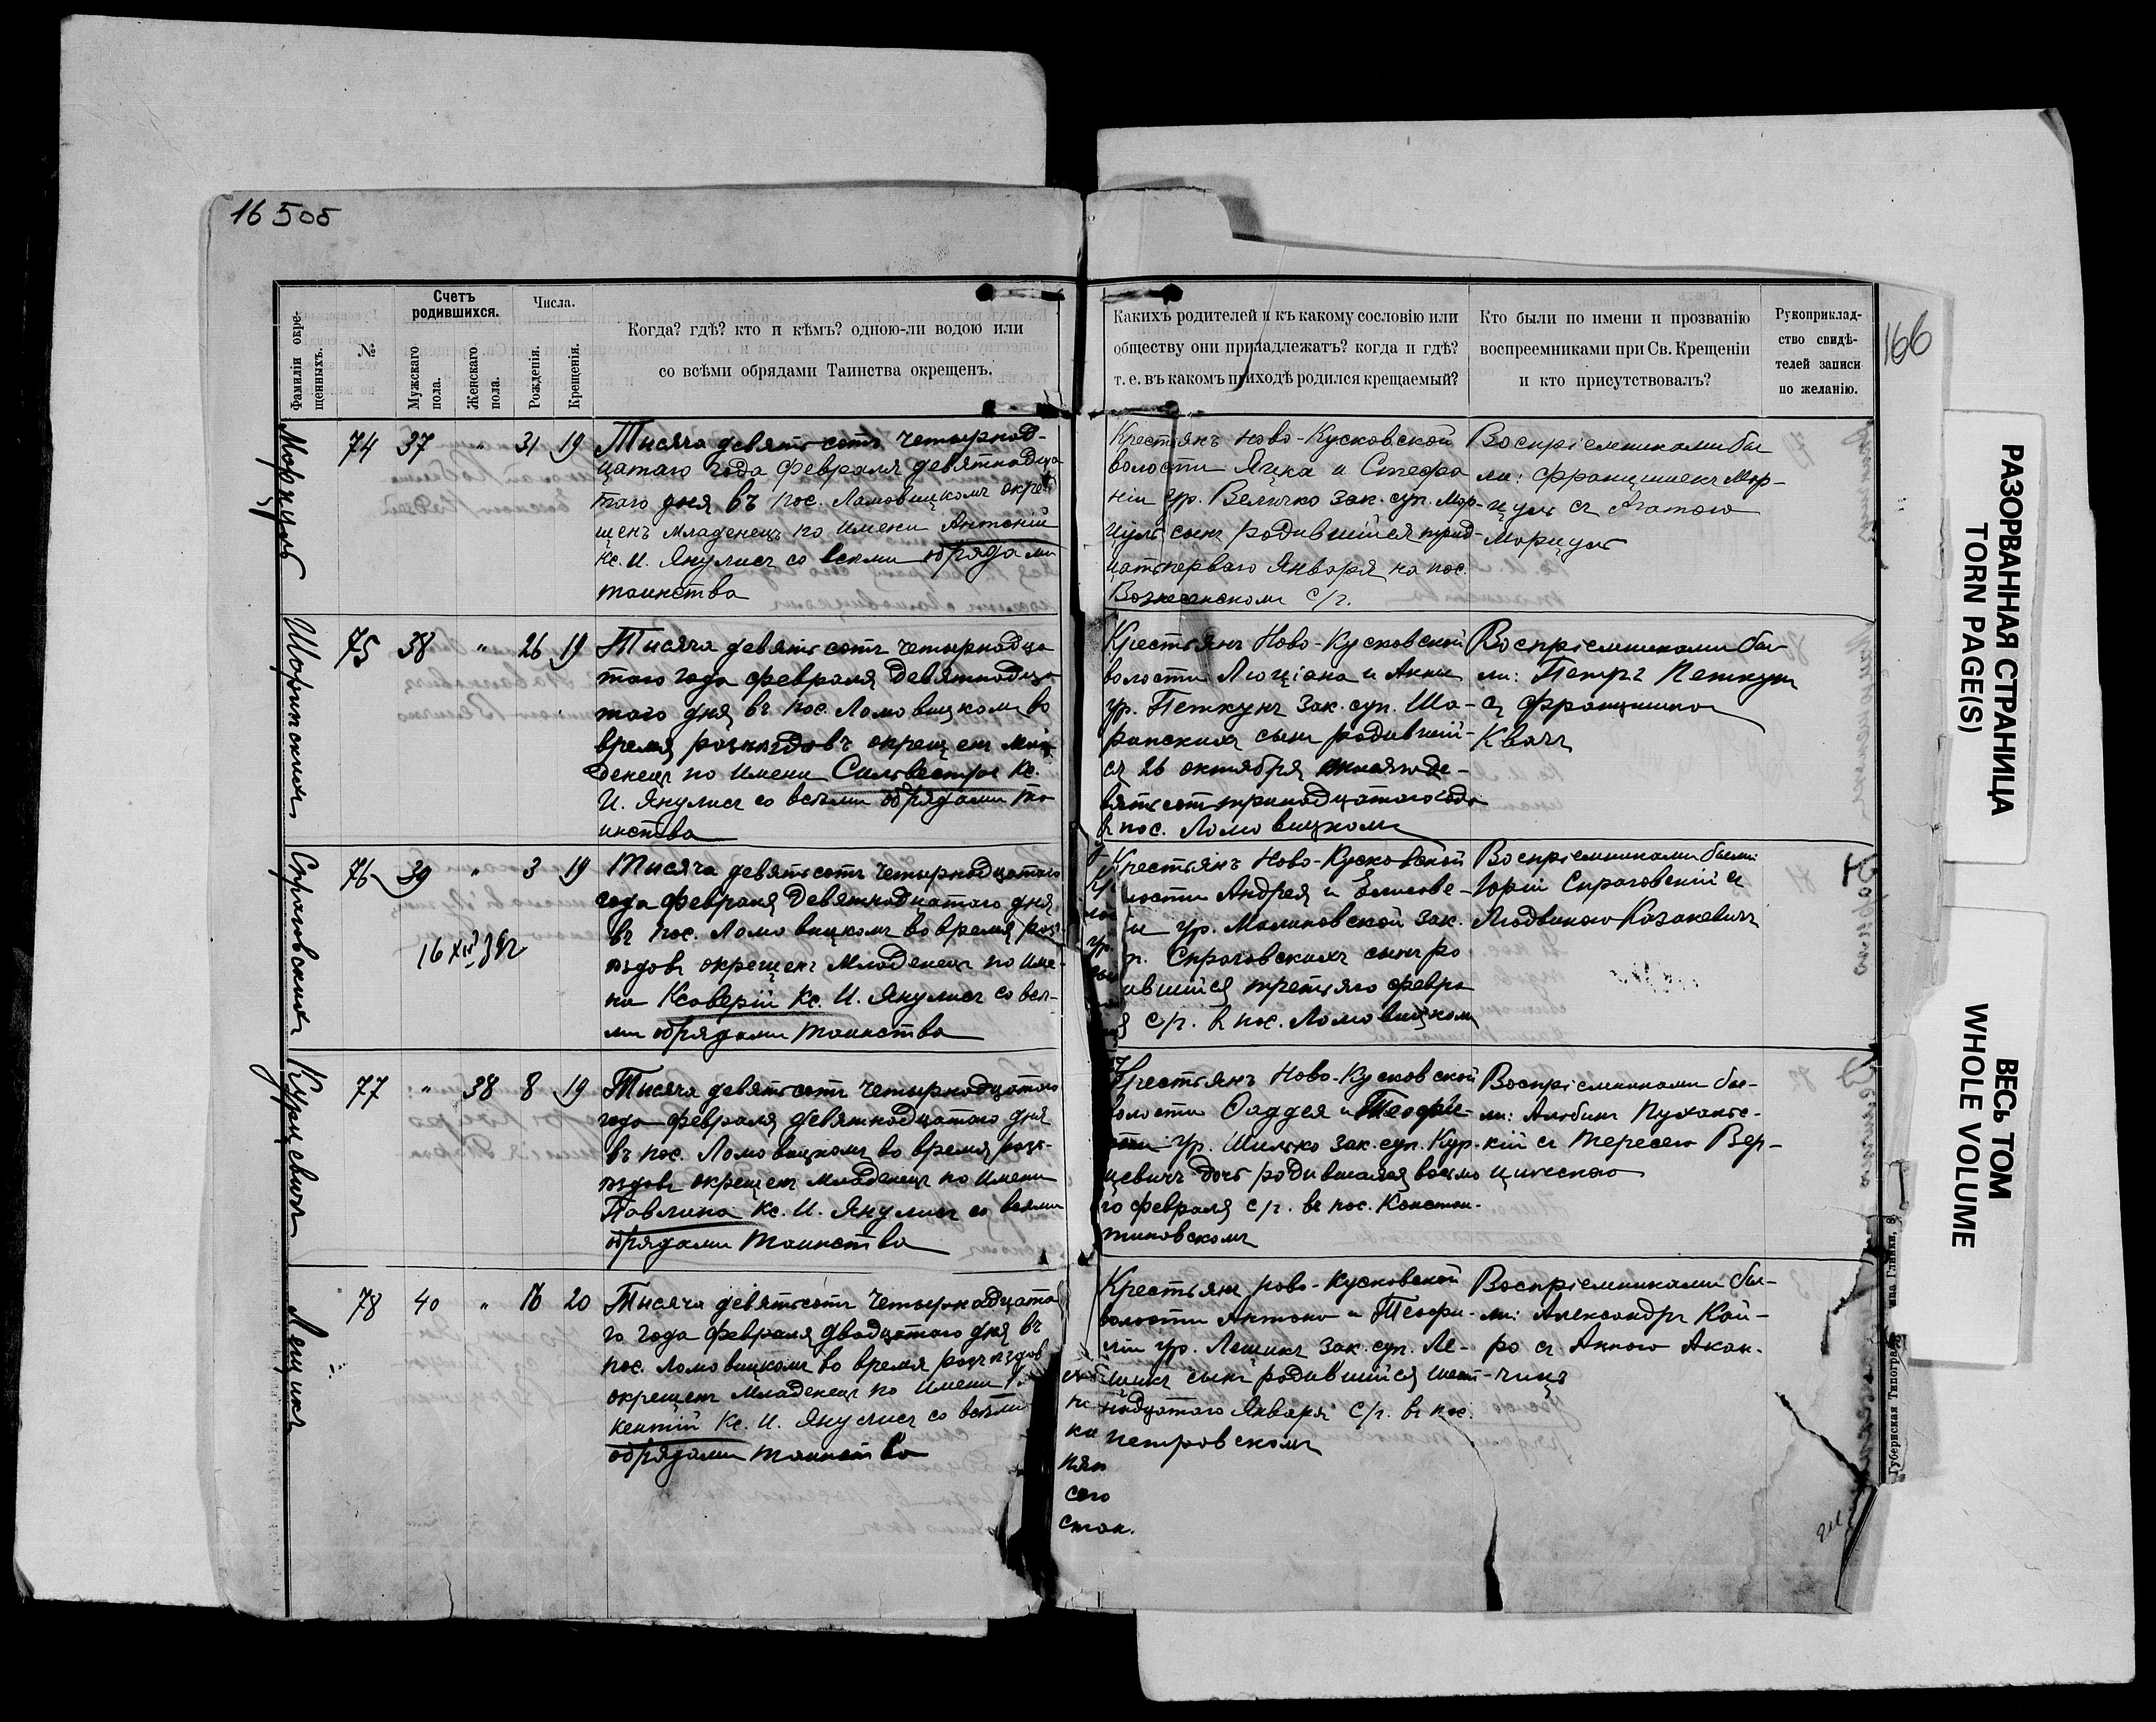 16 505
166
Фамиліи окре-
щенныхъ.
№
Счетъ
родившихся.
Мужскаго
пола.
Женскаго
пола.
Числа.
Рожденія.
Крещенія.
Когда? гдѣ? кто и кѣмъ? одною-ли водою или
со всѣми обрядами Таинства окрещенъ.
Какихъ родителей и къ какому сословію или
обществу они принадлежатъ? когда и гдѣ?
т. е. въ какомъ приходѣ родился крещаемый?
Кто были по имени и прозванію
воспреемниками при Св. Крещеніи
и кто присутствовалъ?
Рукоприклад-
ство свидѣ-
телей записи
по желанію.
Морцуль
74 37 " 31 19
Тысяча девятьсотъ четырнад-
цатаго года февраля девятнадца
таго дня въ пос. Ламовицкомъ окре
щенъ младенецъ по имени Антоній
Кс. И. Янулисъ со всеми обрядами
таинства
Крестьянъ Ново-Кусковской
волости Яцка и Стефа
ніи ур. Величко зак. суп. Мор-
цуль сынъ родившійся трид-
цатьперваго Января на пос.
Вознесенскомъ с/г.
Воспріемниками бы
ли: Францишекъ Мор-
цуль съ Агатою
Морцуль
Шорпинскихъ
75 38 " 26 19
Тысяча девятьсотъ четырнадца
таго года февраля девятнадца
таго дня въ пос. Ломовицкомъ во
время разъѣздовъ окрещенъ мла
денецъ по имени Сильвестръ Кс.
И. Янулисъ со всѣми обрядами та
инства
Крестьянъ Ново-Кусковской
волости Люціана и Анны
ур. Петкунъ зак. суп. Ша-
рпинскихъ сынъ родившій-
ся 26 октября тысяча де-
вятьсоттринадцатаго года
въ пос. Ломовицкомъ
Воспріемниками бы
ли: Петръ Петкун
съ Францишкою
Квачъ
Спраговскихъ
76 39 " 3 19
16 XII
Тысяча девятьсотъ четырнадцатаго
года февраля девятнадцатаго дня
въ пос. Ломовицкомъ во время разъ-
ѣздовъ окрещенъ младенецъ по име-
ни Ксаверій Кс. И. Янулисъ со всѣ-
ми обрядами таинства
Крестьянъ Ново-Кусковской
лости Андрея и Елисаве-
ы ур. Малиновской зак.
п. Спраговскихъ сынъ ро
ившійся третьяго февра
я с/г. въ пос. Ломовицкомъ
Воспріемниками были:
Юрій Спраговскій съ
Людвикою Казакевичъ
Курцевичъ
77 " 38 8 19
Тысяча девятьсотъ четырнадцатаго
года февраля девятнадцатаго дня
въ пос. Ломовицкомъ во время разъ-
ѣздовъ окрещенъ младенецъ по имени
Павлина Кс. И. Янулисъ со всѣми
обрядами таинства
Крестьянъ Ново-Кусковской
волости Ѳаддея и Теофи-
ліи ур. Шилько зак. суп. Кур-
цевичъ дочь родившаяся восьма
го февраля с/г. въ пос. Констан-
тиновскомъ
Воспріемниками бы-
ли: Альбинъ Пухальс-
кій съ Тересею Вер-
цинскою
Лещикъ
78 40 " 16 20
Тысяча девятьсотъ четырнадцата
го года февраля двадцатаго дня въ
пос. Ломовицкомъ во время разъѣздовъ
окрещенъ младенецъ по имени
кентій Кс. И. Янулисъ со всѣми
обрядами таинства
Крестьянъ Ново-Кусковской
волости Антона и Теофи-
ліи ур. Лещикъ зак. суп. Ле-
щикъ сынъ родившійся шест-
надцатаго Января с/г. въ пос.
Петровскомъ
Воспріемниками бы-
ли: Александръ Кай-
ро съ Анною Акан-
чицъ
сего
Губернская Типографія
РАЗОРВАННАЯ СТРАНИЦА
TORN PAGE(S)
ВЕСЬ ТОМ
WHOLE VOLUME